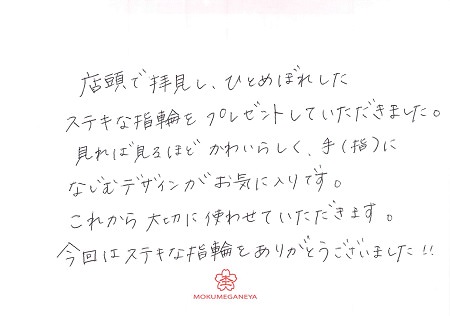 店頭で拝見し、ひとめぼれした
ステキな指輪をプレゼントしていただきました。
見れば見るほどかわいらしく、手(指)に
なじむデザインがお気に入りです。
これから大切に使わせていただきます。
今回はステキな指輪をありがとうございました!!
MOKUMEGANEYA